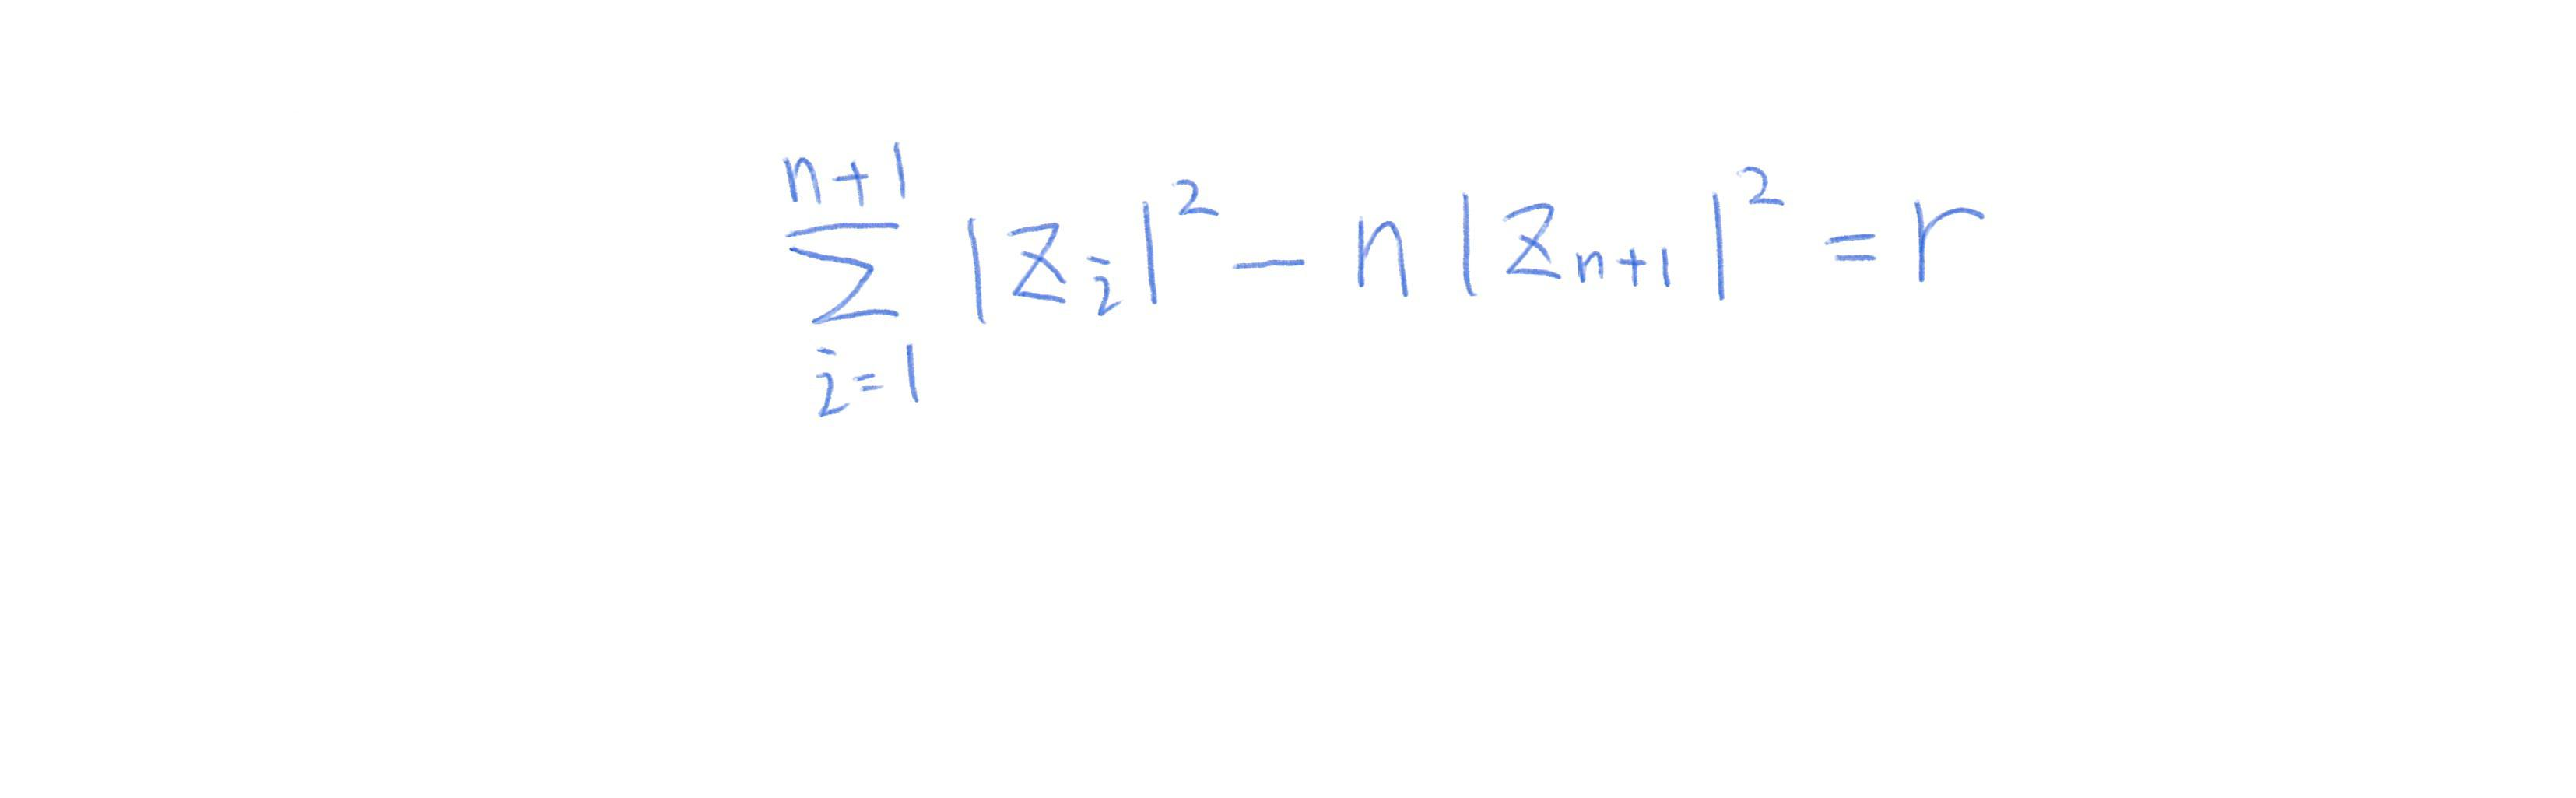 \sum_{i=1}^{n+1} |z_i|^2 - n |z_{n+1}|^2 = r